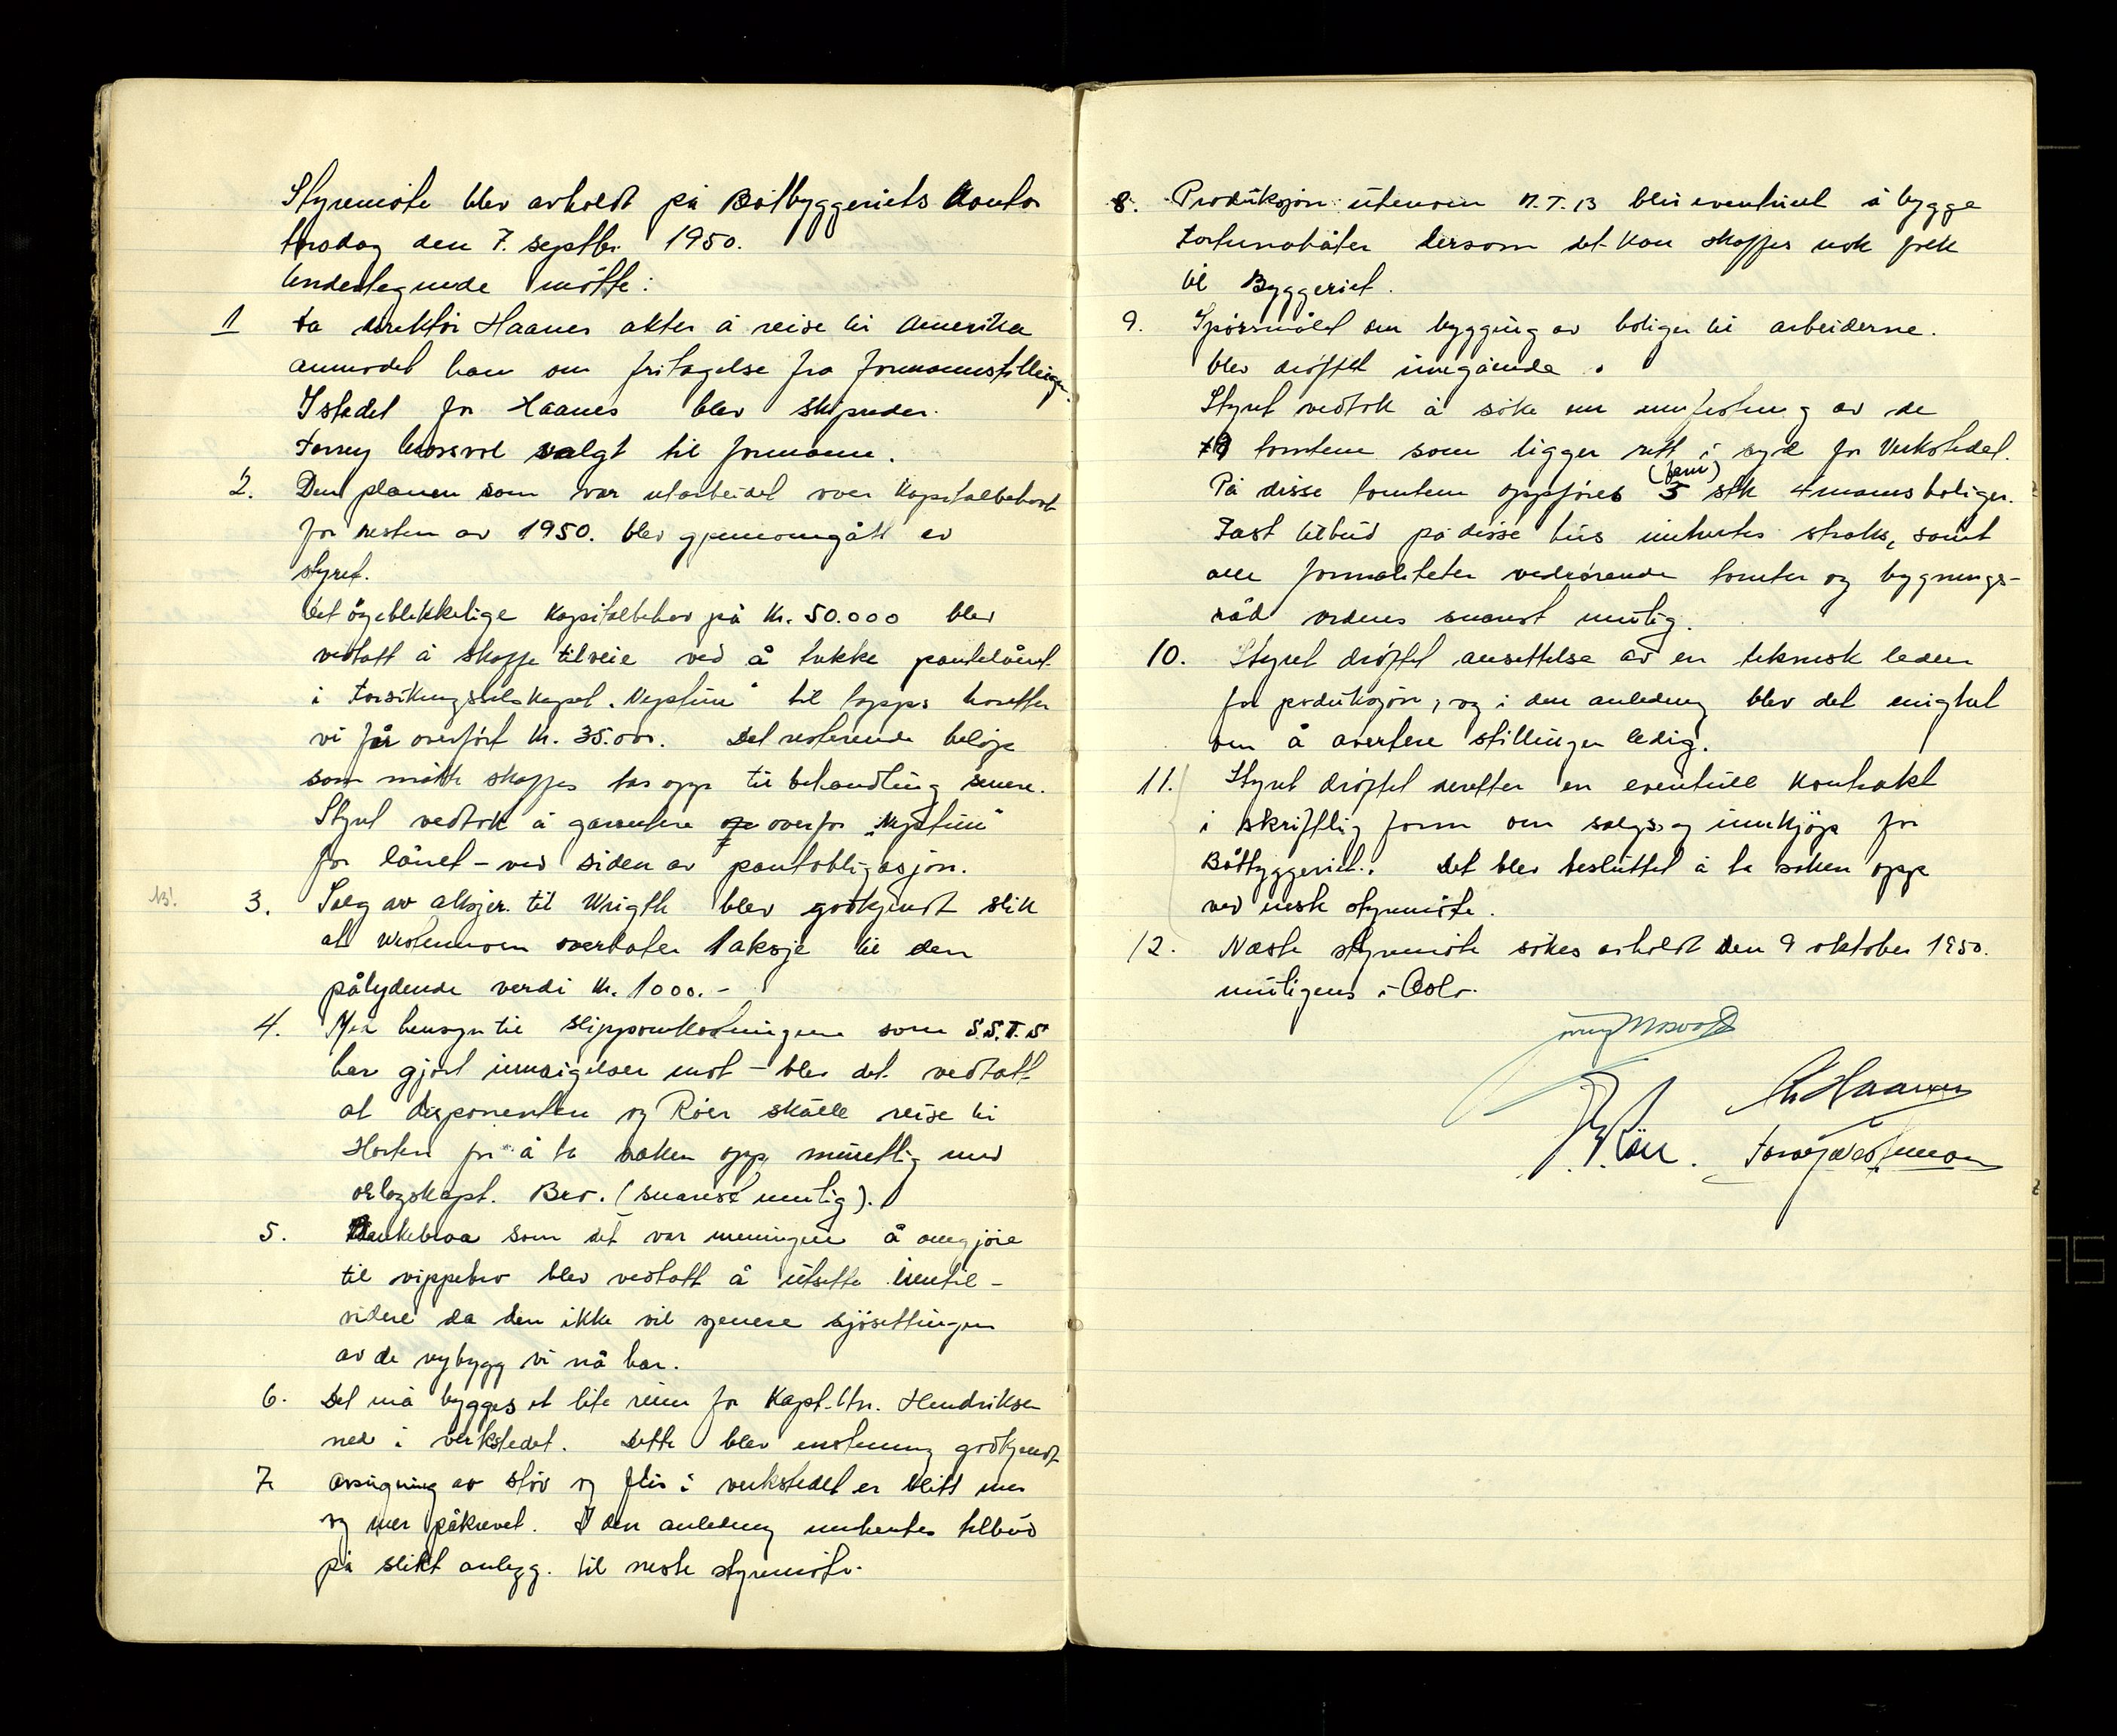 Styremøte blev avholdt på Båtbyggeriets Kontor
torsdag den 7. septbr. 1950.
Undertegnede møtte:
1 Da direktør Haanes akter å reise til Amerika
anmodet han om fritagelse fra formannsstillingen
Istedet for Haanes blev skipsreder
Torrey Mosvold valgt til formann.
2. Den planen som var utarbeidet over Kapitalbehovet
for resten av 1950. blev gjennomgått av
styret.
Det øyeblikkelige Kapitalbehov på Kr. 50.000 blev
vedtatt å skaffe tilveie ved å trekke pantelånet
i Forsikringsselskapet „Neptun" til topps hvorefter
vi får overført Kr. 35.000. Det resterende beløp
som måtte skaffes tas opp til behandling senere.
Styret vedtok å garantere overfor „Neptun"
for lånet – ved siden av pantobligasjon.
NB!
3. Salg av aksjer til Wrigth blev godkjendt slik
at Westermoen overtater 1 aksje til den
pålydende verdi Kr. 1000.-
4. Med hensyn til slippomkostningene som S.S.T.S
har gjort innsigelser mot – blev det vedtatt
at disponenten og Röer skulle reise til
Horten for å ta saken opp muntlig med
orlogskapt. Bro. (snarest mulig).
5. Plankebroa som det var meningen å omgjøre
til vippebro blev vedtatt å utsette inntil-
videre da den ikke vil sjenere sjøsettingen
av de nybygg vi nå har.
6. Det må bygges et lite rum for Kapt.ltn. Hendriksen
ned i verkstedet. Dette blev enstemmig godkjendt
7. Avsugning av støv og flis i verkstedet er blitt mer
og mer påkrevet. I den anledning innhentes tilbud
på slikt anlegg. til neste styremøte.
8. Produksjon utenom M.T.B blir eventuelt å bygge
Fortunabåter dersom det kan skaffes nok folk
til Byggeriet.
9. Spørsmålet om bygging av boliger til arbeiderne
blev drøftet inngående.
Styret vedtok å søke om innfesting av de
tomtene som ligger rett i syd for Verkstedet.
(fem)
På disse tomtene oppføres 5 stk 4 manns boliger.
Fast tilbud på disse hus innhentes straks, samt
alle formaliteter vedrørende tomter og bygnings-
råd ordnes snarest mulig.
10. Styret drøftet ansettelse av en teknisk leder
for produksjon, og i den anledning blev det enighet
om å avertere stillingen ledig.
11. Styret drøftet derefter en eventuell Kontrakt
i skriftlig form om salgs og innkjøp for
Båtbyggeriet. Det blev besluttet å ta saken opp
ved neste styremøte.
12. Næste styremøte søkes avholdt den 9 oktober 1950.
muligens i Oslo.
Torrey Mosvold
Haanes
Röer. Westermoen